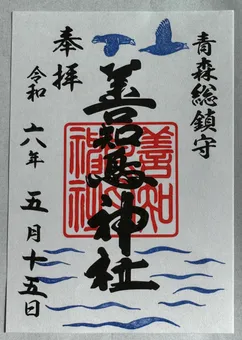 青森総鎮守
善知鳥神社
奉拝
令和六年五月十五日
善知
神社